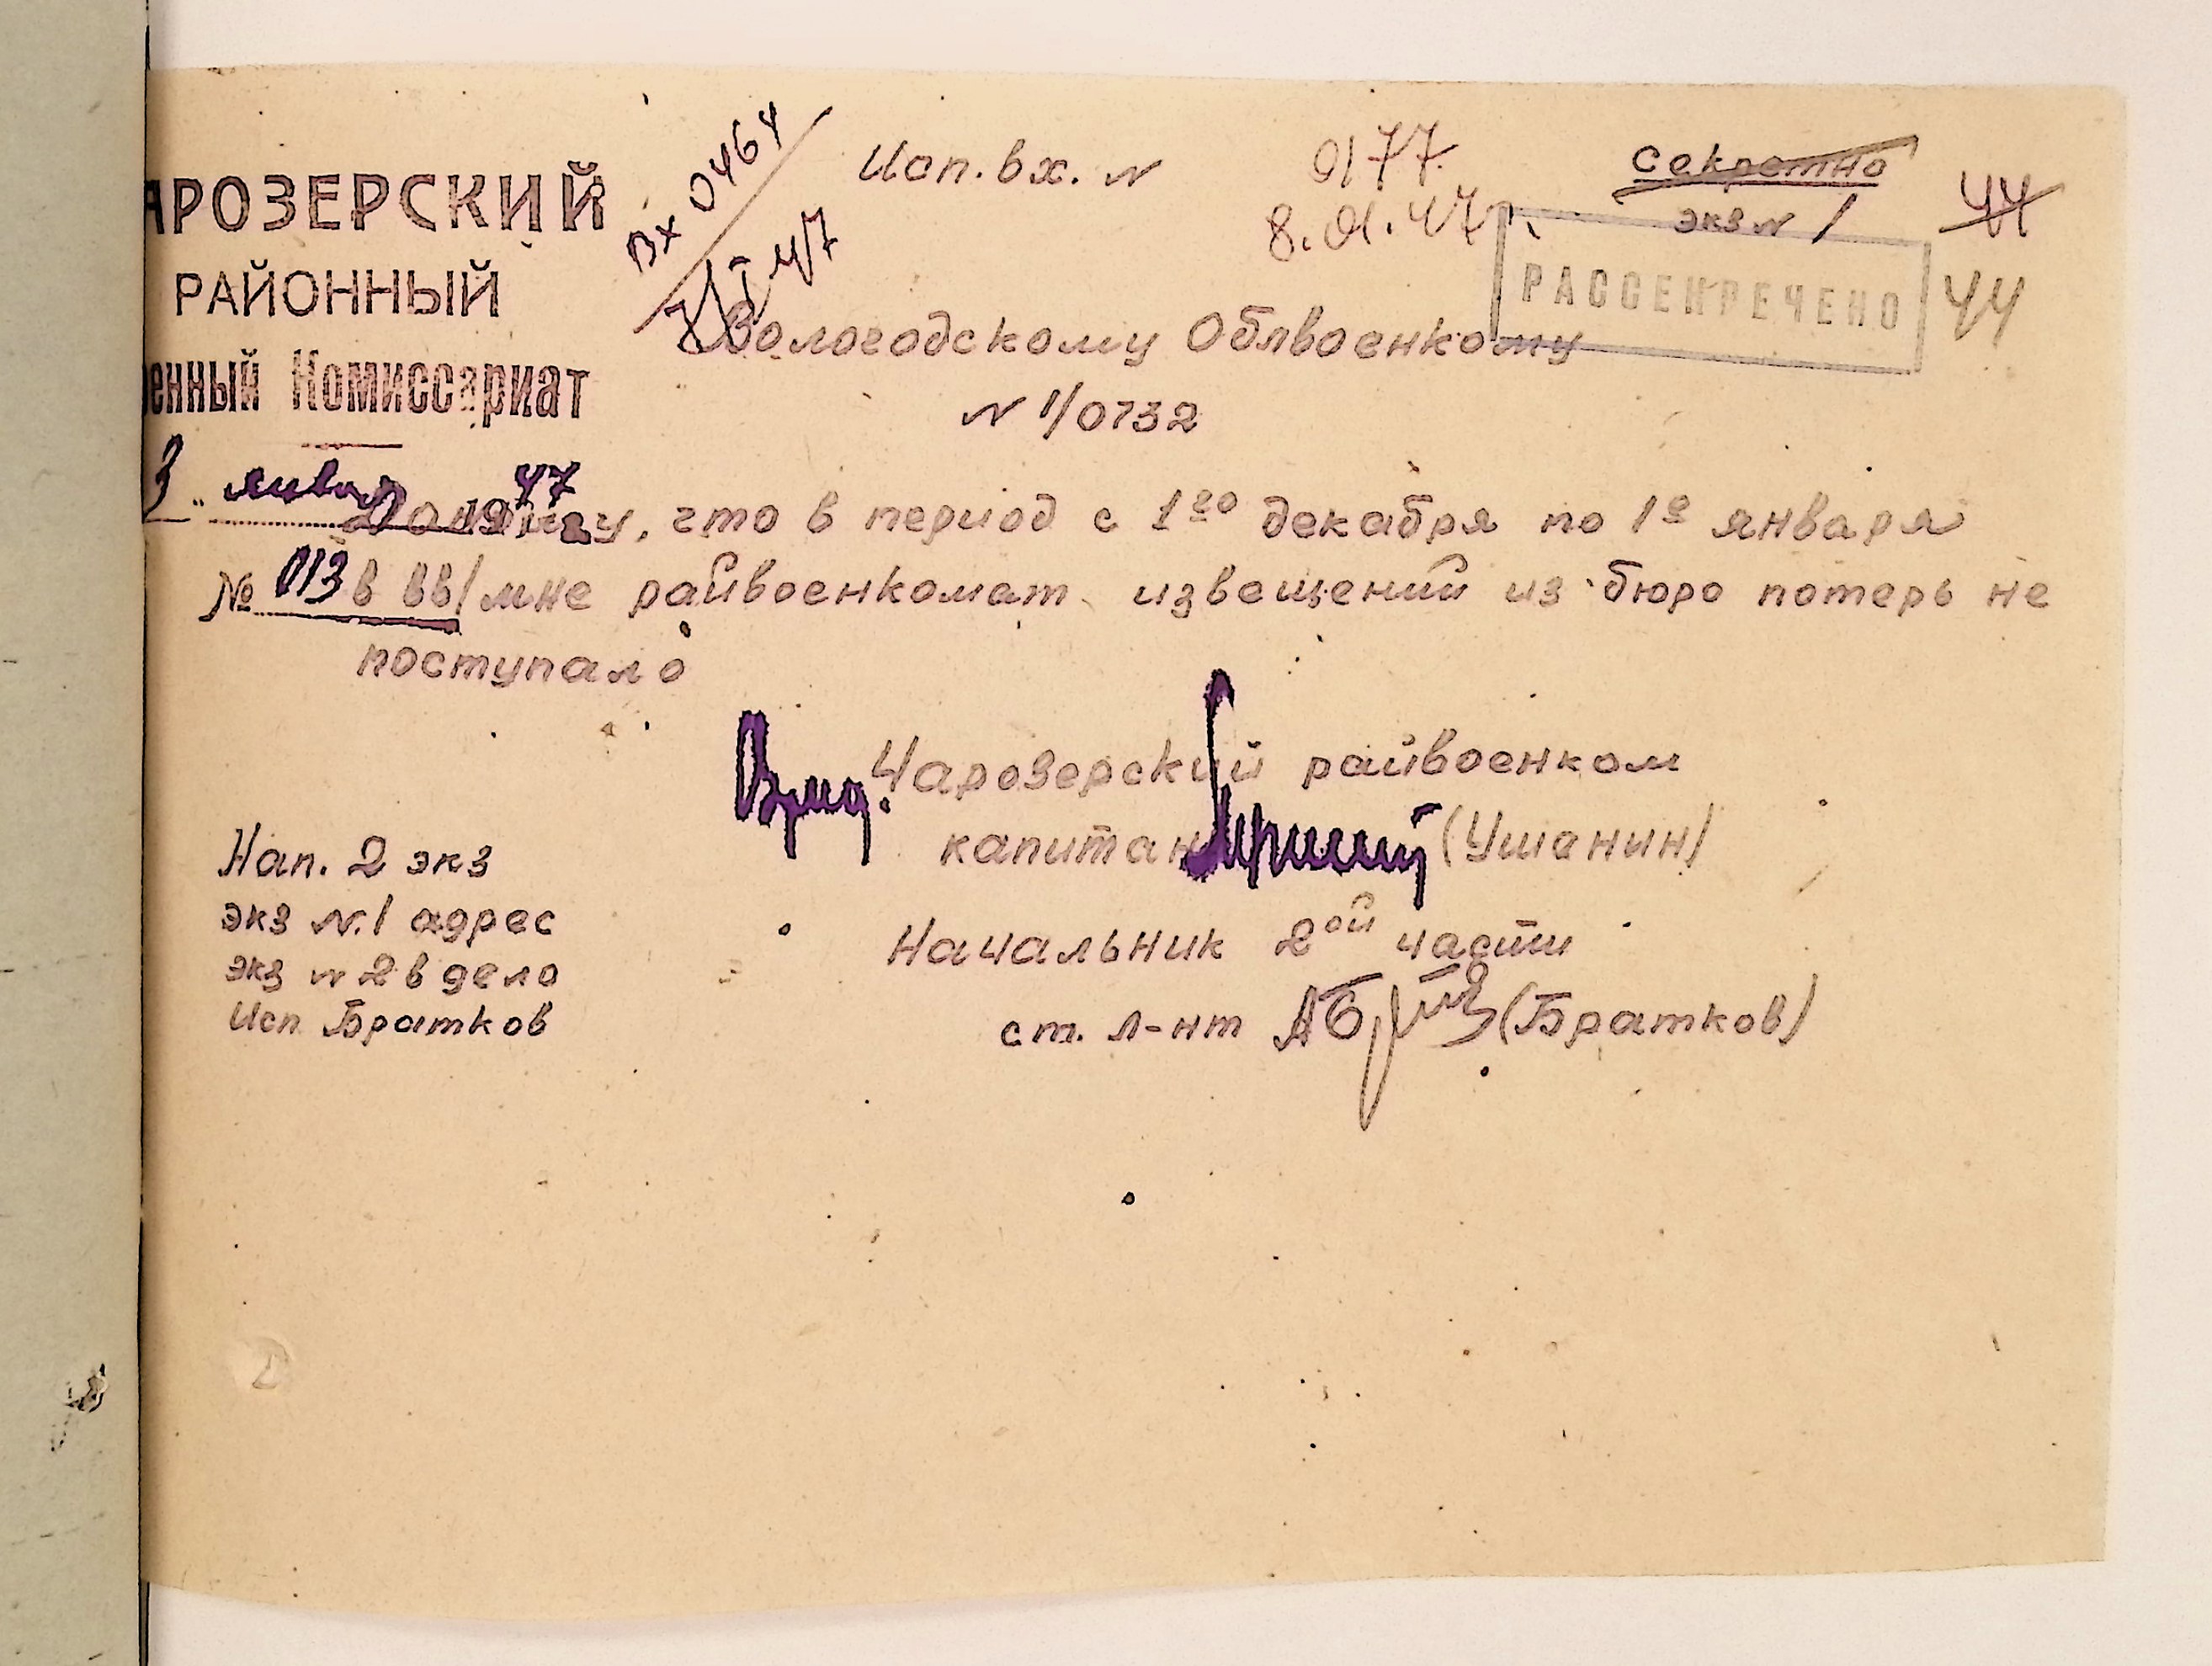 АРОЗЕРСКИЙ
РАЙОННЫЙ
енный Комиссариат
3 " января 1947
№ 013
Вх 0464
47
Исп. вх. N 0177
8.01.47
секретно
экз N 1
44
44
РАССЕКРЕЧЕНО
Вологодскому Облвоенкому
N 1/0732
Доношу, что в период с 1го декабря по 1е января
в вв/мне райвоенкомат извещений из бюро потерь не
поступало
Врид. Чарозерский райвоенком
капитан (Ушанин)
Начальник 2ой части
ст. л-нт (Братков)
Нап. 2 экз
экз N.1 адрес
экз N 2 в дело
Исп Братков